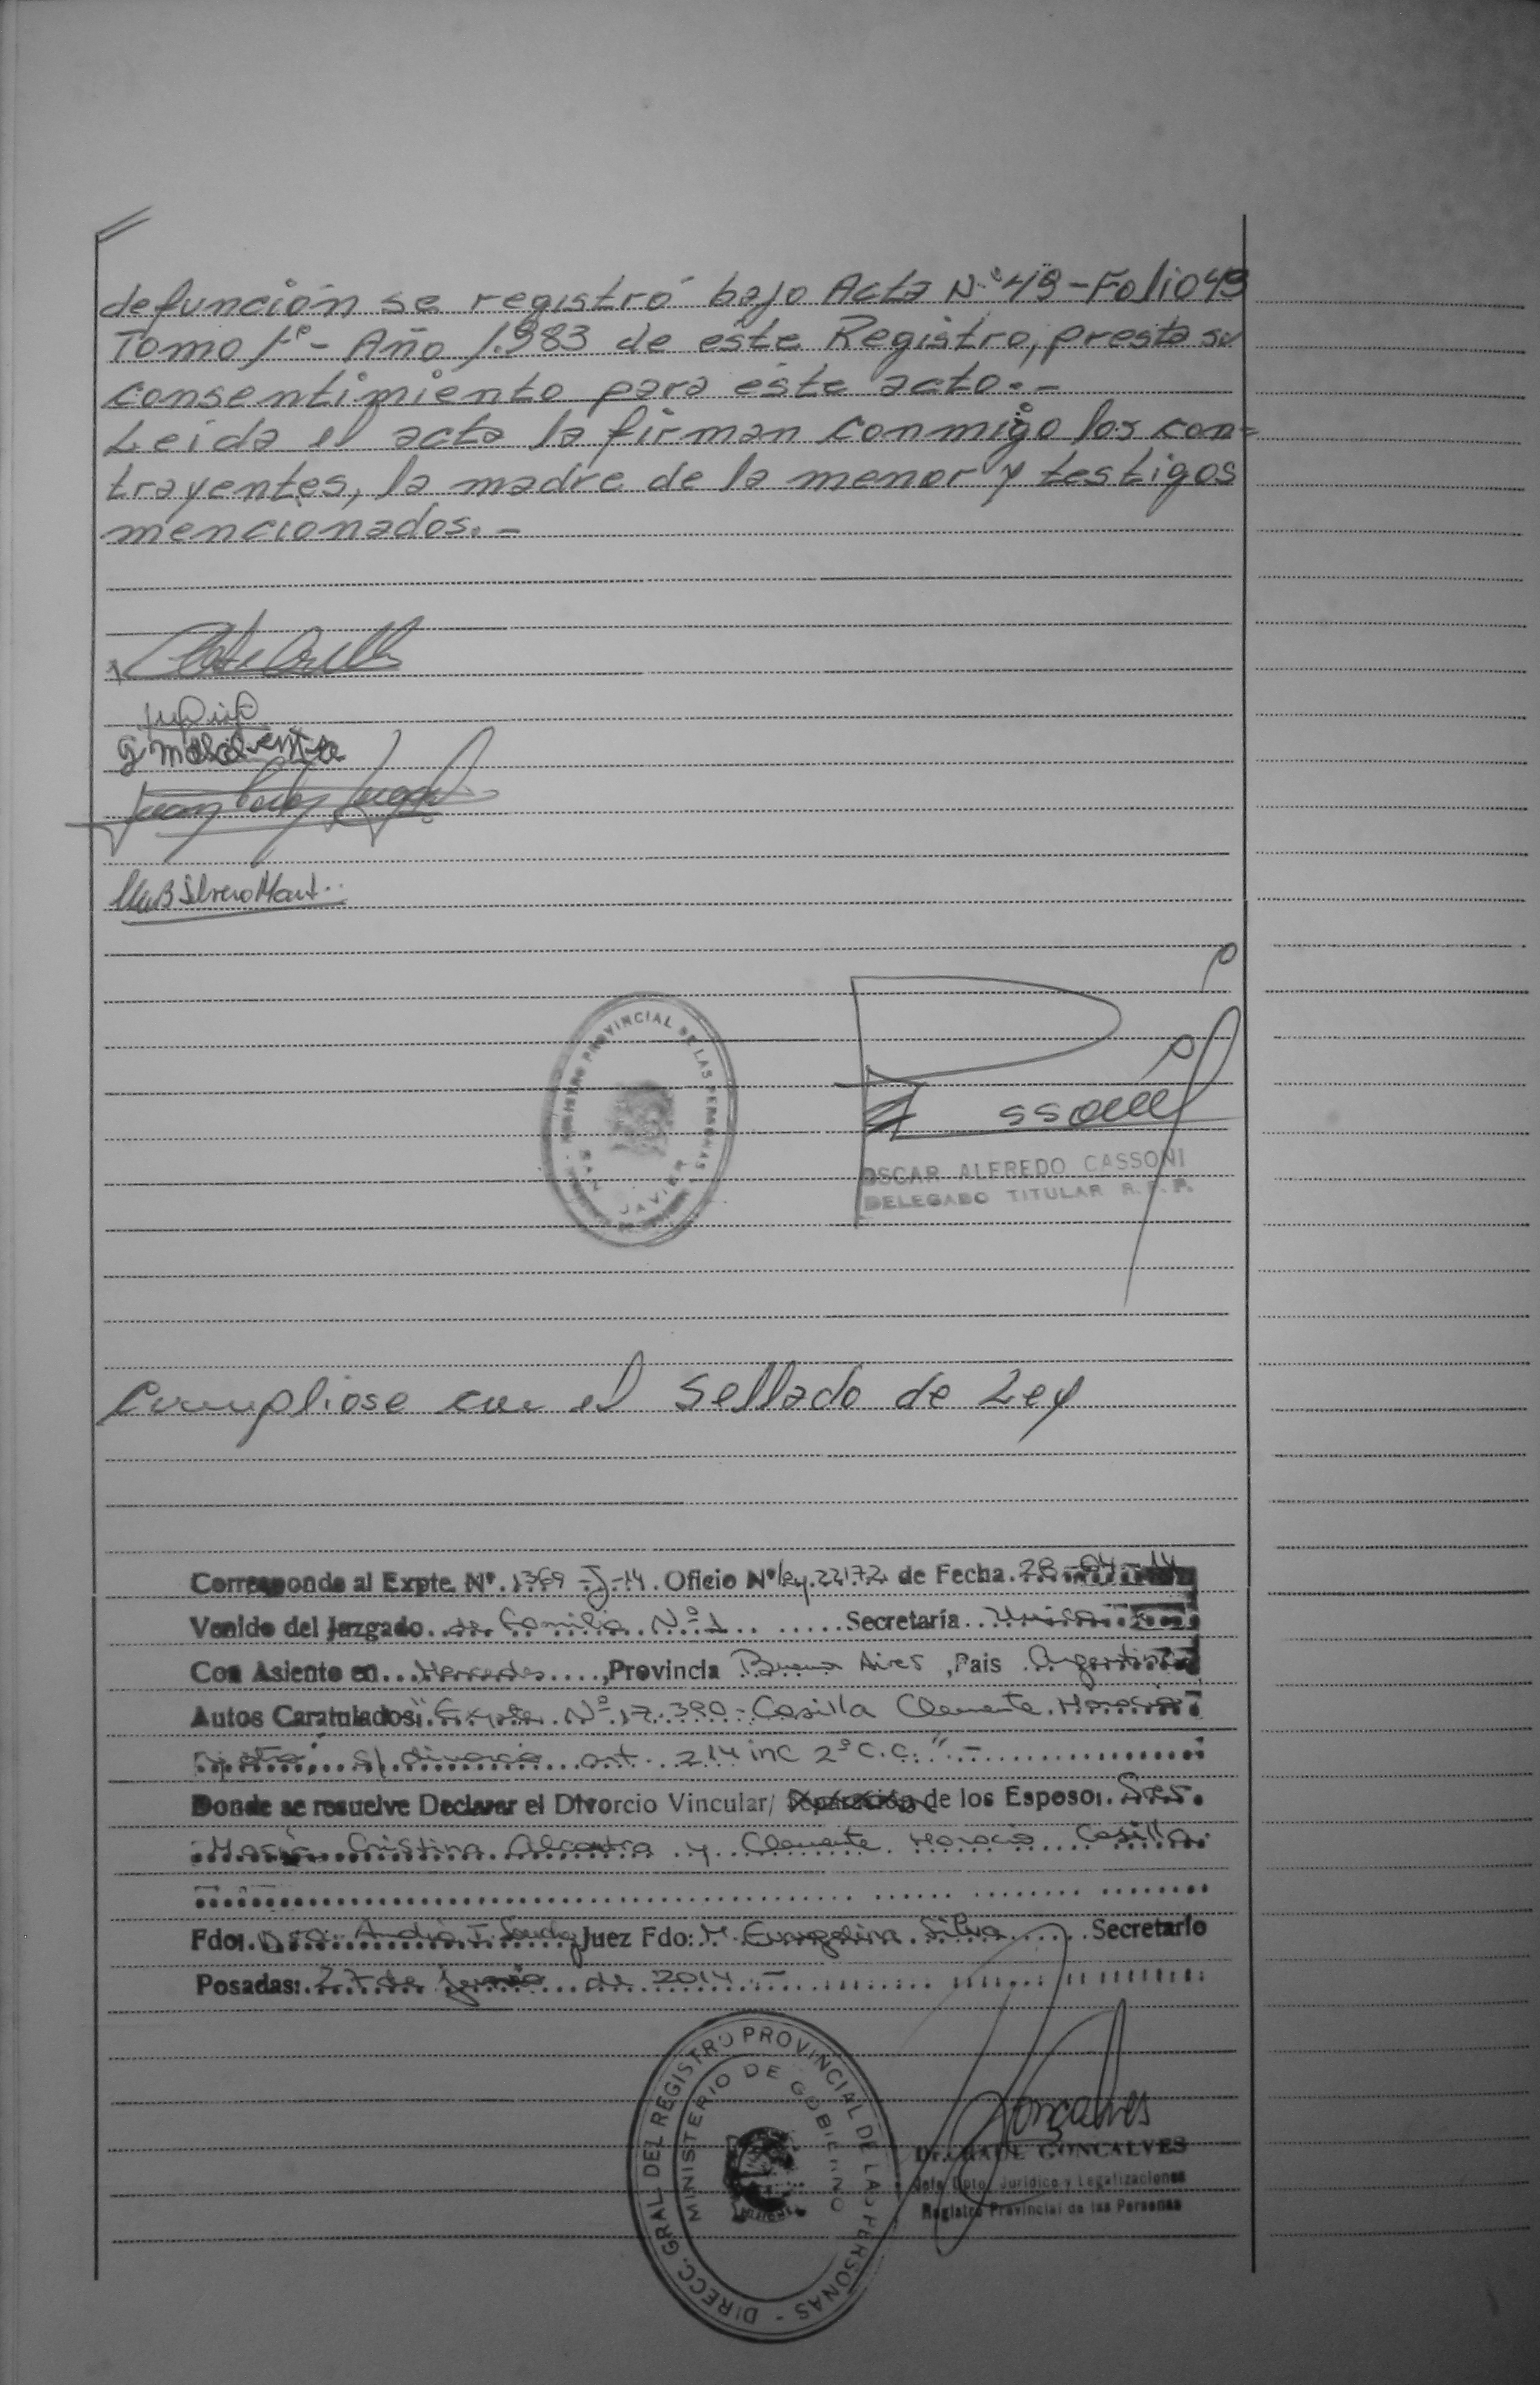 defunción se registró bajo Acta N.º 49 - Folio 49
Tomo 1º - Año 1.983 de este Registro, presta su
consentimiento para este acto. -
Leida el acta la firman conmigo los con=
trayentes, la madre de la menor y testigos
mencionados. -
REGISTRO PROVINCIAL DE LAS PERSONAS
JAVIER
OSCAR ALFREDO CASSONI
DELEGADO TITULAR R. P. P.
Cumpliose con el sellado de Ley
Corresponde al Expte. Nº. 1369 - J - 14. Oficio Nº 22172 de Fecha. 28 - 04 - 14
Venido del Juzgado de Familia Nº 1 Secretaría Unica
Con Asiento en Mercedes, Provincia Buenos Aires, Pais Argentina
Autos Caratulados: "Expte. Nº 17.390 - Casilla Clemente Horacio
s/ divorcio art. 214 inc 2º C.C." -
Donde se resuelve Declarar el Divorcio Vincular/ Separación de los Esposo: Sres.
María Cristina y Clemente Horacio Casilla
Fdo: Dra. Juez Fdo: M. Evangelina Silva Secretario
Posadas: 27 de de 2014 -
DIRECC. GRAL. DEL REGISTRO PROVINCIAL DE LAS PERSONAS -
MINISTERIO DE GOBIERNO
MISIONES
Goncalves
Dr. RAUL GONCALVES
Jefe Dpto. Jurídico y Legalizaciones
Registro Provincial de las Personas